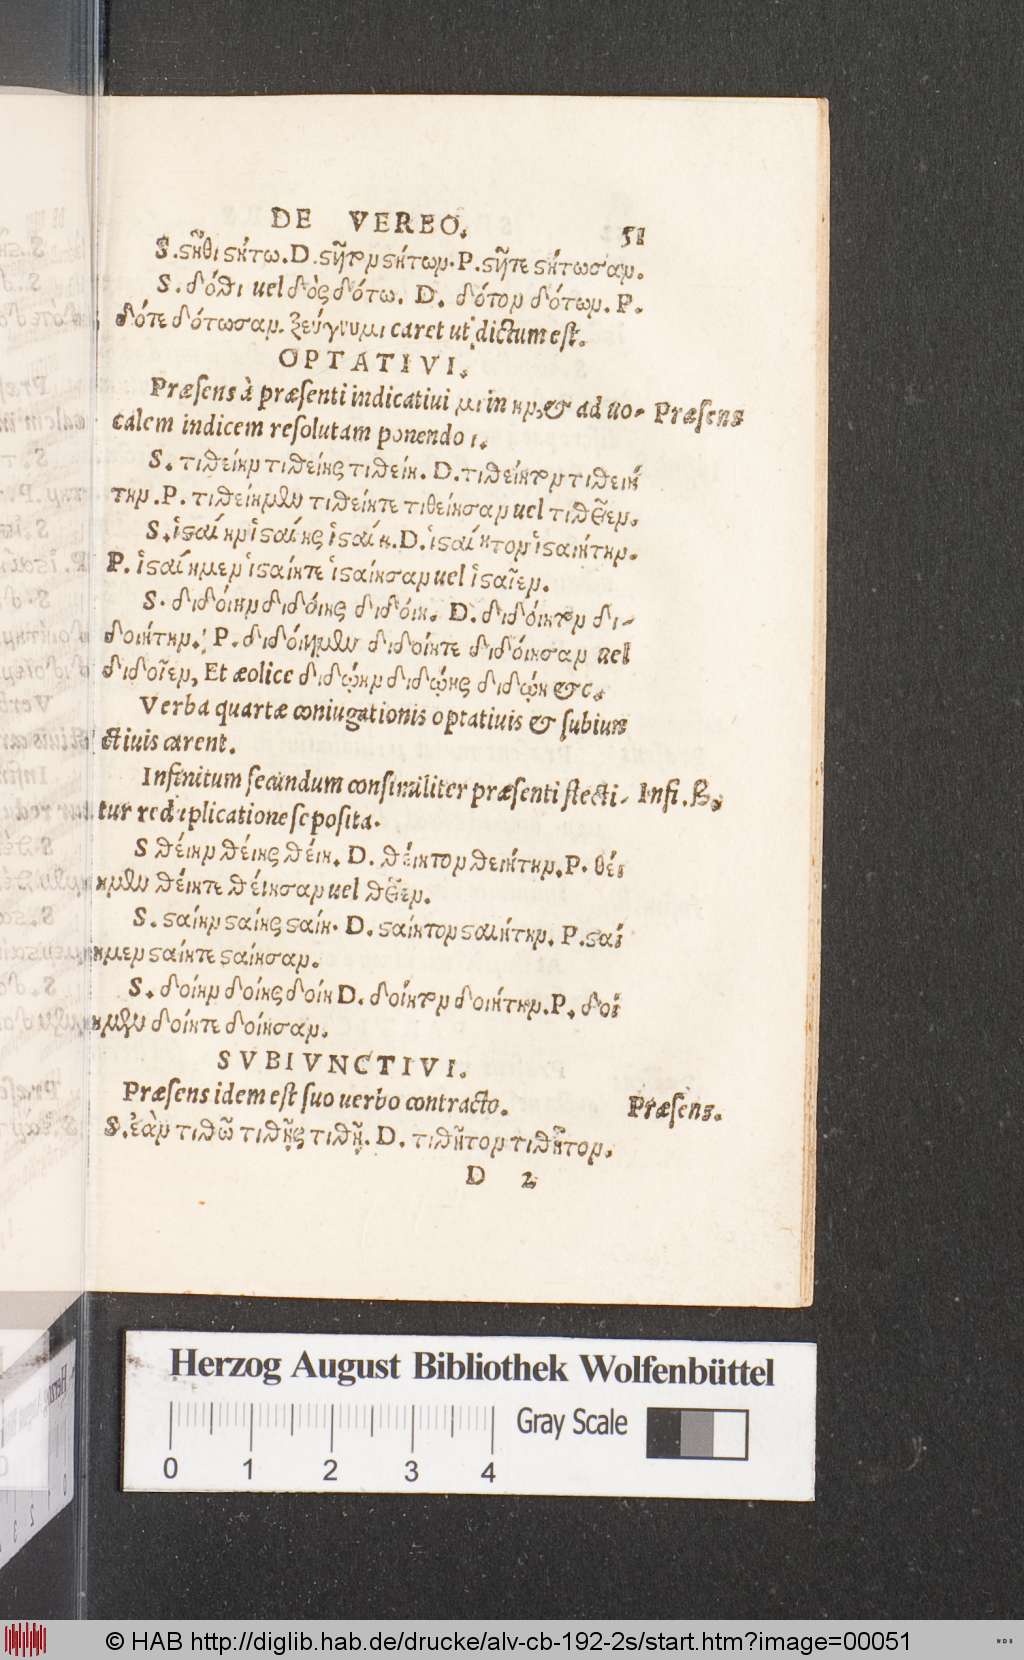 DE VERBO. 51
S. στῆθι στήτω. D. στῆτον στήτων. P. στῆτε στήτωσαν.
S. δόθι uel δὸς δότω. D. δότον δότων. P.
δότε δότωσαν. ζεύγνυμι caret ut dictum est.
OPTATIVI.
Præsens à præsenti indicatiui μι in ην, & ad uo- Præsens
calem indicem resolutam ponendo ι.
S. τιθείην τιθείης τιθείη. D. τιθείητον τιθειή
την. P. τιθείημεν τιθείητε τιθείησαν uel τιθεῖεν.
S. ἱσταίην ἱσταίης ἱσταίη. D. ἱσταίητον ἱσταιήτην.
P. ἱσταίημεν ἱσταίητε ἱσταίησαν uel ἱσταῖεν.
S. διδόιην διδόιης διδόιη. D. διδόιητον δι-
δοιήτην. P. διδόιημεν διδοίητε διδόιησαν uel
διδοῖεν, Et æolice διδῴην διδῴης διδῴη &c.
Verba quartæ coniugationis optatiuis & subiun
ctiuis carent.
Infinitum secundum consimiliter præsenti flecti- Infi. ß.
tur reduplicatione seposita.
S θέιην θέιης θέιη. D. θέιητον θειήτην. P. θέι
ημεν θέιητε θέιησαν uel θεῖεν.
S. σταίην σταίης σταίη. D. σταίητον σταιήτην. P. σταί
ημεν σταίητε σταίησαν.
S. δοίην δοίης δοίη D. δοίητον δοιήτην. P. δοί
ημεν δοίητε δοίησαν.
SVBIVNCTIVI.
Præsens idem est suo uerbo contracto. Præsens.
S. ἐὰν τιθῶ τιθῇς τιθῇ. D. τιθῆτον τιθῆτον.
D 2
Herzog August Bibliothek Wolfenbüttel
Gray Scale
0 1 2 3 4
© HAB http://diglib.hab.de/drucke/alv-cb-192-2s/start.htm?image=00051